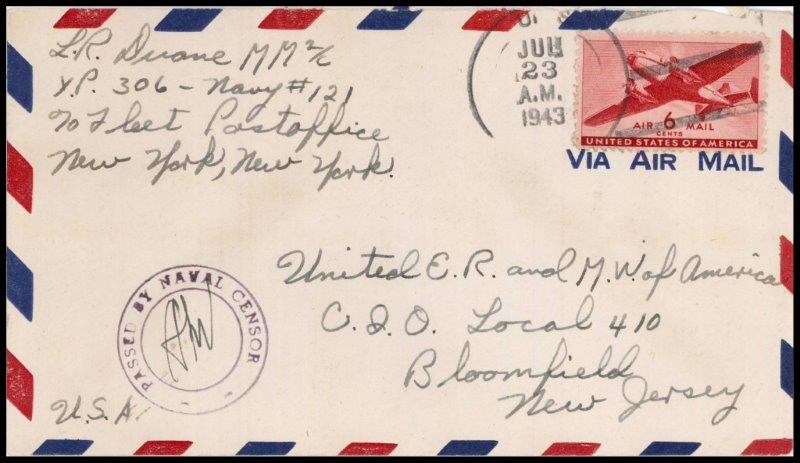 L.R. Duane MM 2/c
Y.P. 306 - Navy #121
c/o Fleet Postoffice
New York, New York.
JUN
23
A.M.
1943
AIR 6 MAIL
CENTS
UNITED STATES OF AMERICA
VIA AIR MAIL
United E.R. and M.W. of America
C.I.O. Local 410
Bloomfield
New Jersey
PASSED BY NAVAL CENSOR
U.S.A.